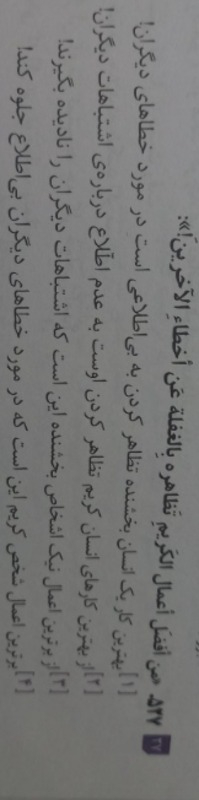 ۲۷ ۵۲۷. «من أفضل أعمال الكريم تَظاهره بِالغفلة عَن أخطاءِ الآخرينَ!»:
[۱] بهترین کار یک انسان بخشنده تظاهر کردن به بی‌اطلاعی است در مورد خطاهای دیگران!
[۲] از بهترین کارهای انسان کریم تظاهر کردن اوست به عدم اطّلاع درباره‌ی اشتباهات دیگران!
[۳] از برترین اعمال نیک اشخاص بخشنده این است که اشتباهات دیگران را نادیده بگیرند!
[۴] برترین اعمال شخص کریم این است که در مورد خطاهای دیگران بی‌اطلاع جلوه کند!